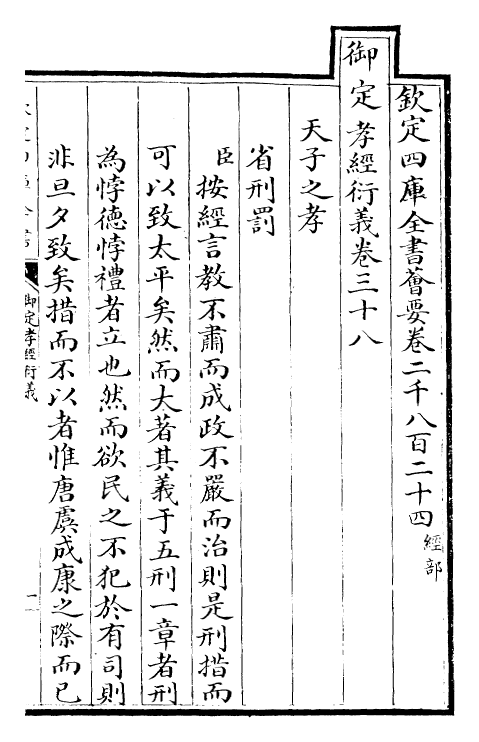 欽定四庫全書薈要卷二千八百二十四 經部
御定孝經衍義卷三十八
天子之孝
省刑罰
臣按經言教不肅而成政不嚴而治則是刑措而
可以致太平矣然而大著其義于五刑一章者刑
為悖德悖禮者立也然而欲民之不犯於有司則
非旦夕致矣措而不以者惟唐虞成康之際而已
御定孝經衍義